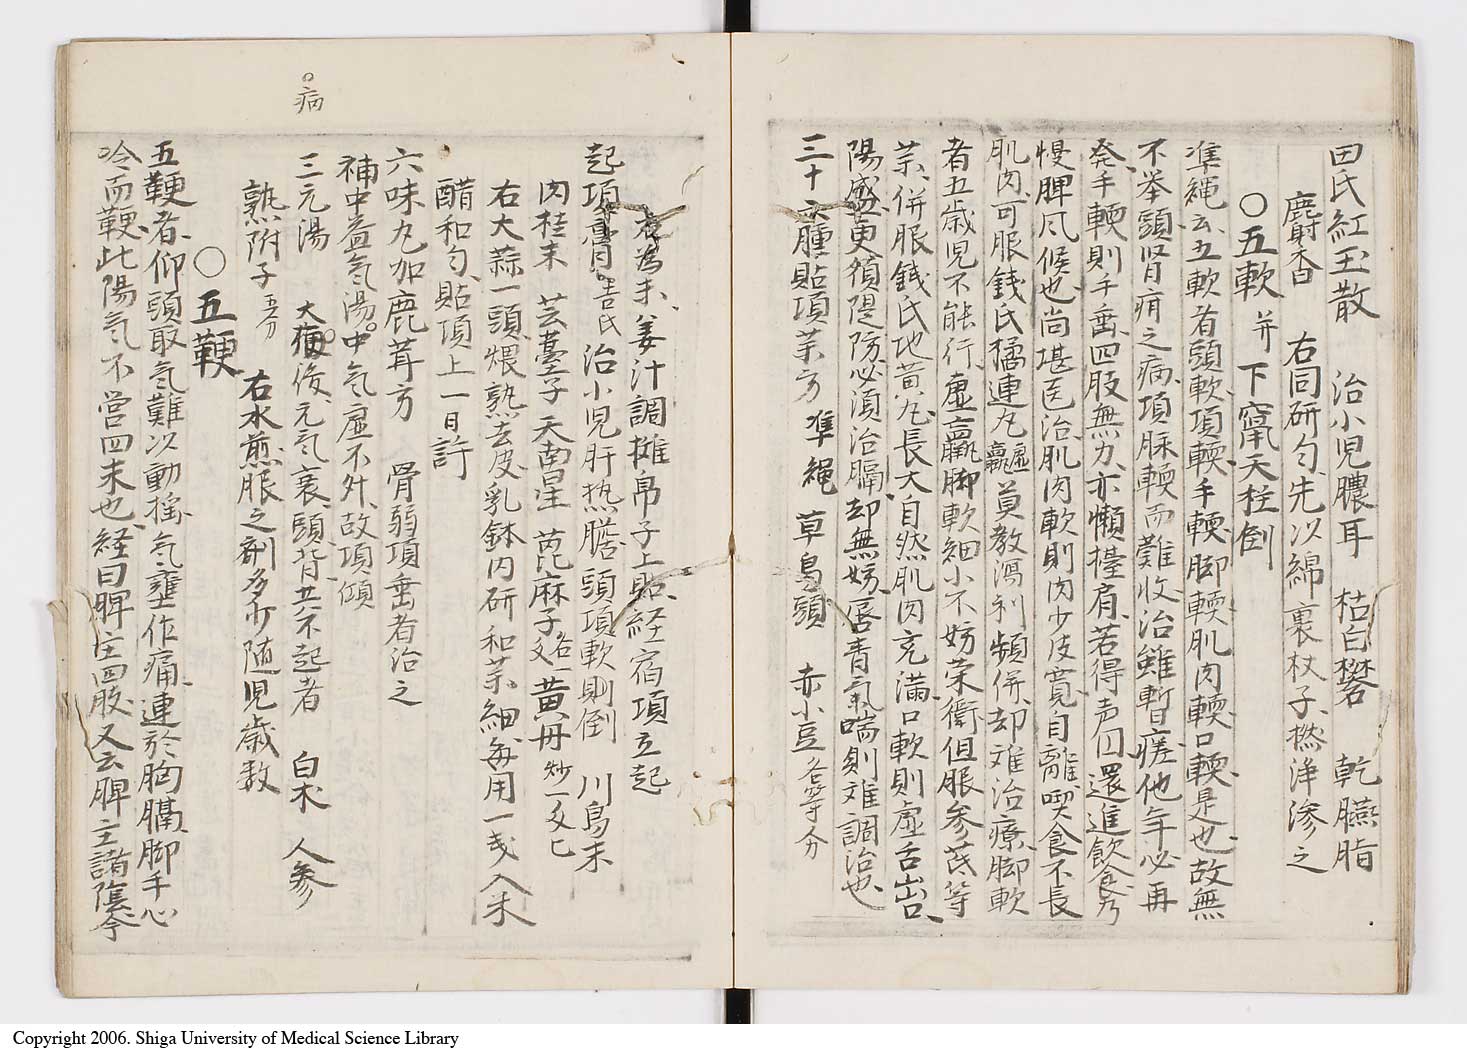 田氏紅玉散 治小児膿耳 枯白礬 乾臙脂
麝香 右同研匀先以綿裹杖子撚浄渗之
○五軟 并下竄天柱倒
準縄云五軟者頭軟項軟手軟脚軟肌肉軟口軟是也故無
不挙頭肾疳之病項脉軟而難收治雖暫瘥他年必再
発手軟則手垂四肢無力亦懶擡肩若得声囗還進飲食乃
慢脾风候也尚堪医治肌肉軟則肉少皮寛自離喫食不長
肌肉可服錢氏橘連丸 虚羸 莫教瀉利頻併却难治療脚軟
者五歳児不能行虚羸脚軟細小不妨荣衛但服参芪等
茱併服錢氏地黄丸長大自然肌肉充滿口軟則虚舌出口
陽盛更須隄防必湏治膈却無妨唇青氣喘則难調治也
三十六腫貼項茱方 準縄 草烏頭 赤小豆 各等分
右為末姜汁調攤帛子上貼経宿項立起
起項膏 吉氏 治小児肝热膽頭項軟則倒 川烏末
肉桂末 芸薹子 天南星 萆麻子 各一文 黄丹 炒一文匕
右大蒜一頭煨熟去皮乳鉢内研和茱細每用一戋入米
醋和匀貼項上一日許
六味丸加鹿茸方 骨弱項垂者治之
補中益気湯 中気虚不升故項傾
三元湯 大病後元気衰頭背共不起者 白术 人参
熟附子 五分 右水煎服之剤多少随児歳数
○五鞕
五鞕者仰頭取気難以動揺気壅作痛連於胸膈脚手心
冷而鞕此陽気不営四末也経曰脾庄四股又云脾主諸隂今
○病
Copyright 2006. Shiga University of Medical Science Library